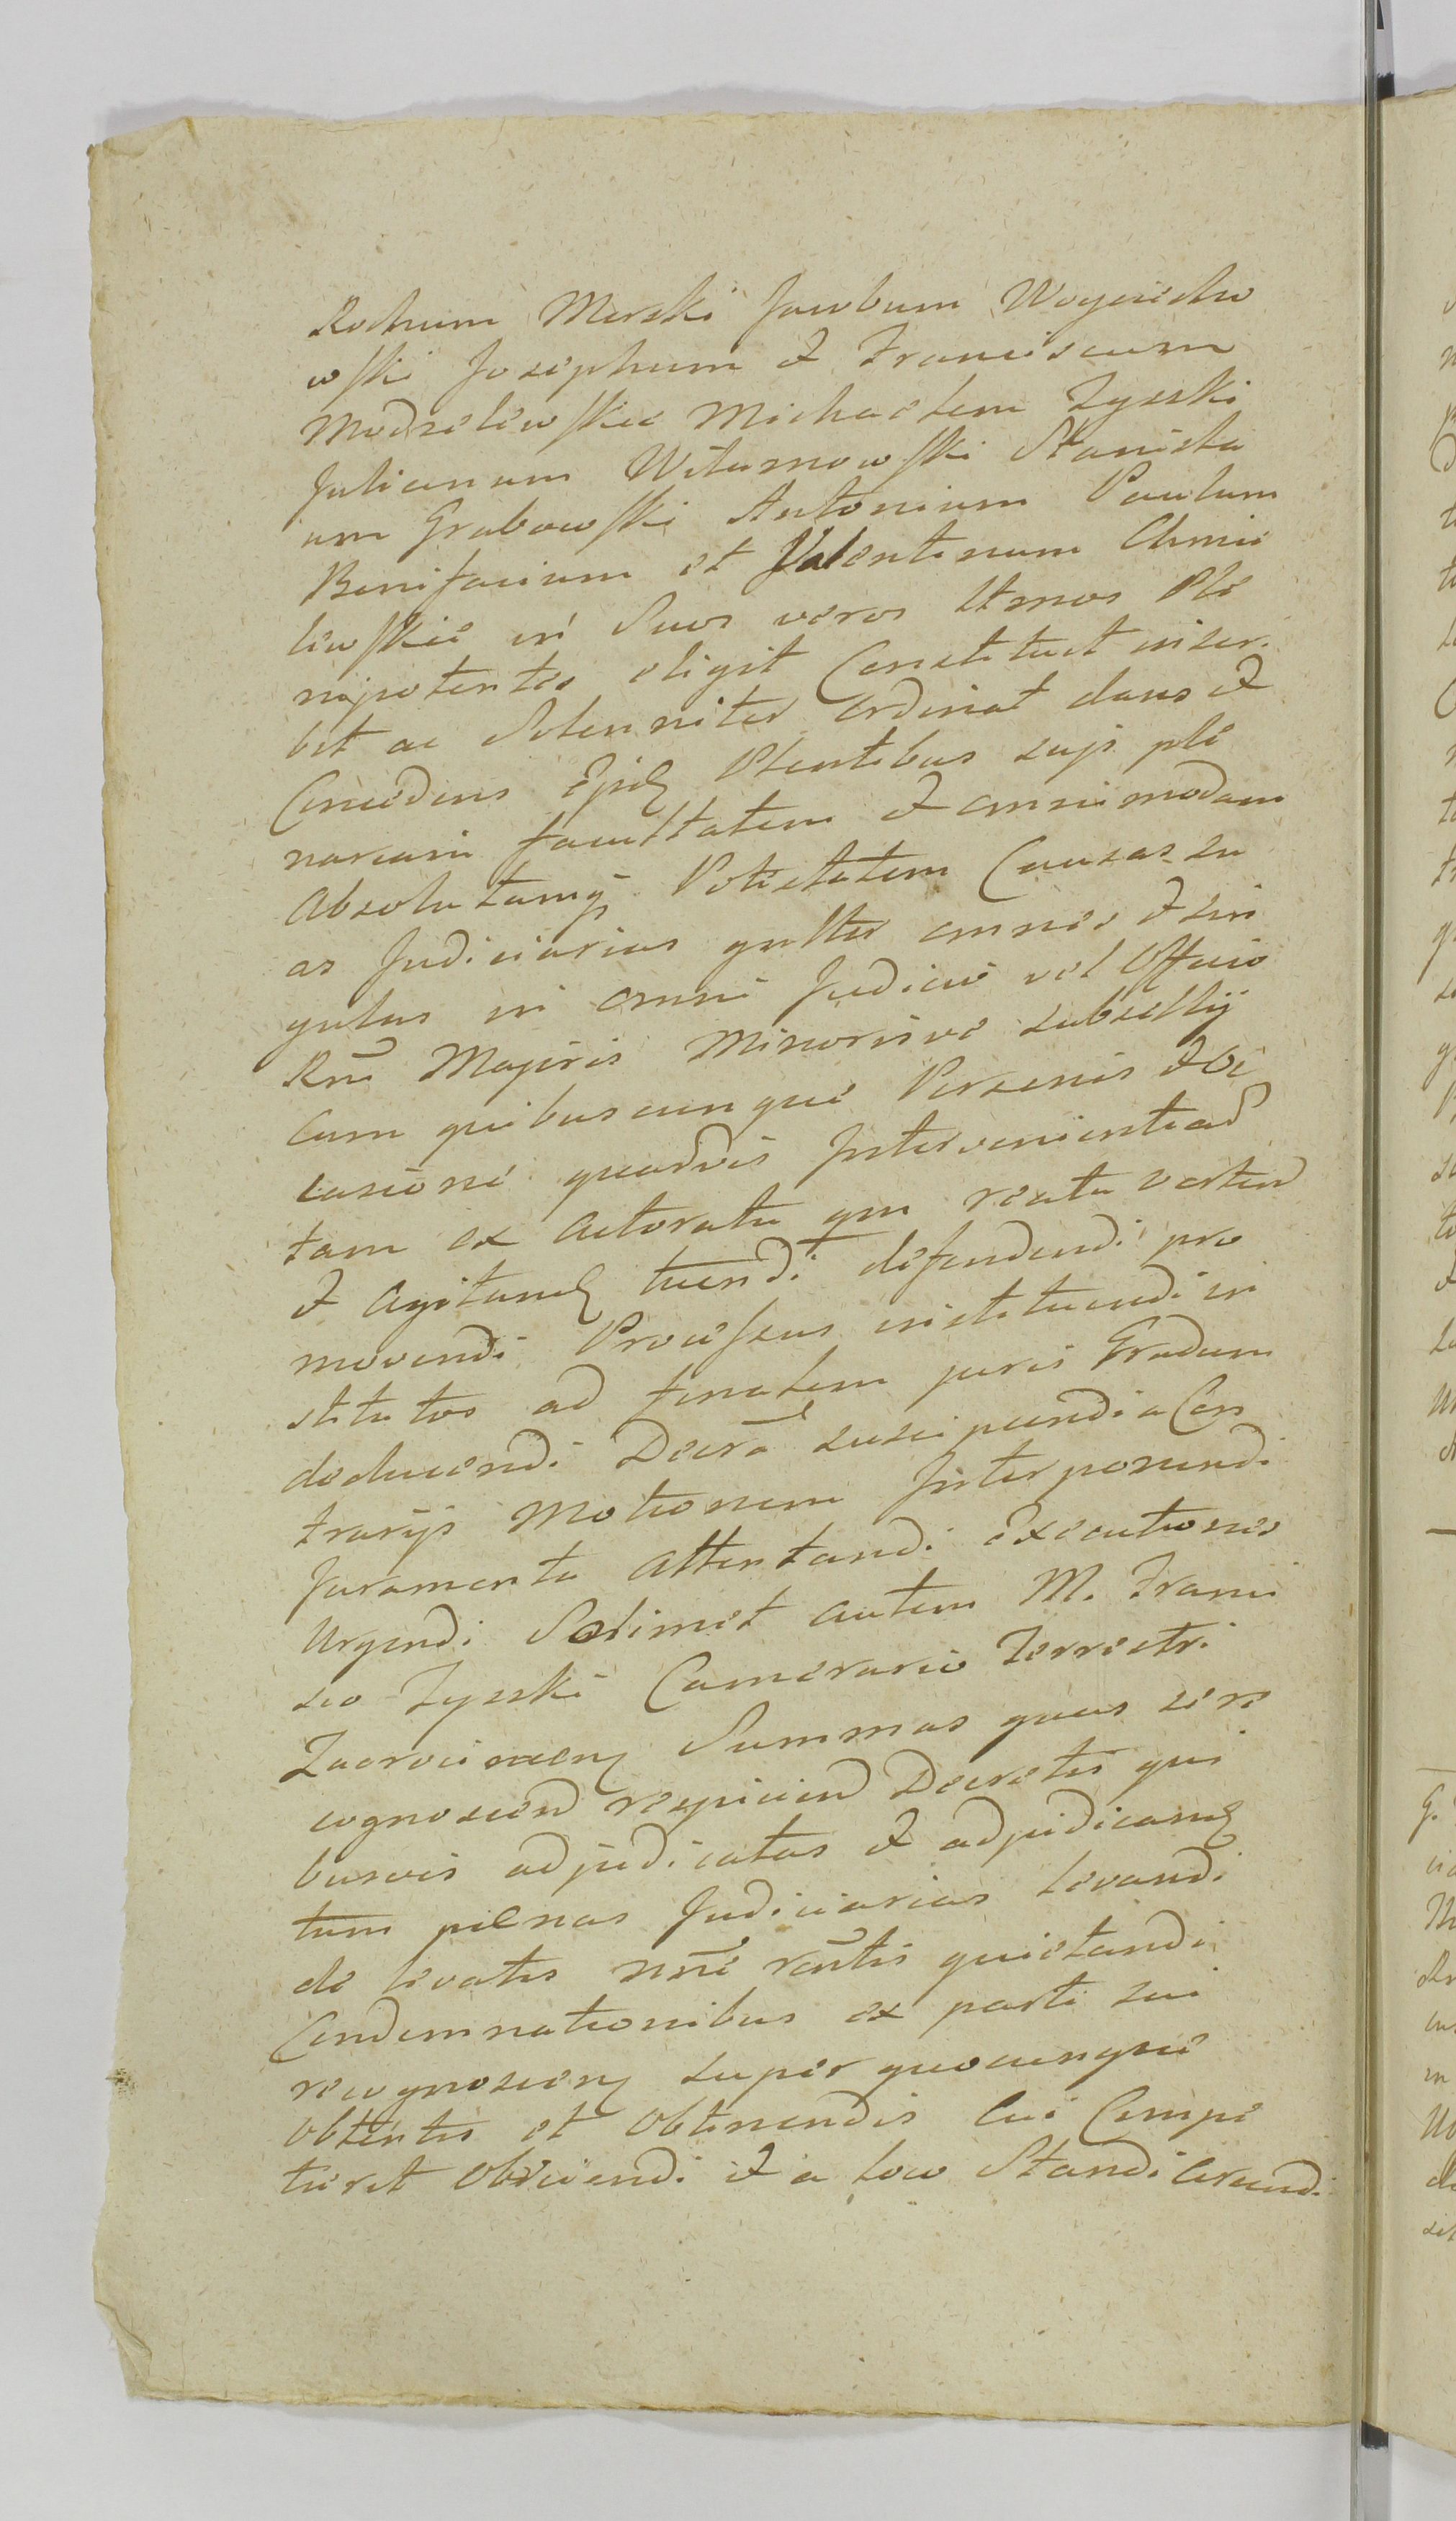 Rochum Merski Jacobum Woyciecho
wski Josephum & Franciscum
Modzelewskie Michaelem Zysski
Julianum Wilamowski Stanisla
um Grabowski Antonium Paulum
Bonifacium et Valentinum Chmie
lewskie in Suos veros ltmos Ple
nipotentes eligit Constituit inscri
bit ac Solenniter Ordinat dans &
Concedens Ejsd Plentibus suis ple
nariam facultatem & omnimodam
Absolutamq Potestatem Causas su
as Judiciarias gnlter omnes & sin
gulas in omni Judicio vel Officio
Rni Majoris Minorisve subsellij
Cum quibuscunque Personis & Oc
casione quadvis Intervenientiad
tam ex Actoratu qm reatu verten
& Agitand tuendi defendendi pro
movendi Processus instituendi in
stitutos ad finalem juris Gradum
deducendi Decrã suscipiendi a Con
trarijs Motionem Interponendi
Juramenta Attentandi Executiones
Urgendi Solimet autem M. Franci
sco Zysski Camerario Terrestri
Zacrocimen Summas quas sere
cognoscend respiciend Decretis qui
busvis adjudicatas & adjudicand
tum pænas Judiciarias levandi
de levatis nñe rẽntis quietandi
Condemnationibus ex parte sui
recognoscen super quocunque
obtentis et obtinendis cui Compe
tierit Obviendi & a loco Standi Arcendi